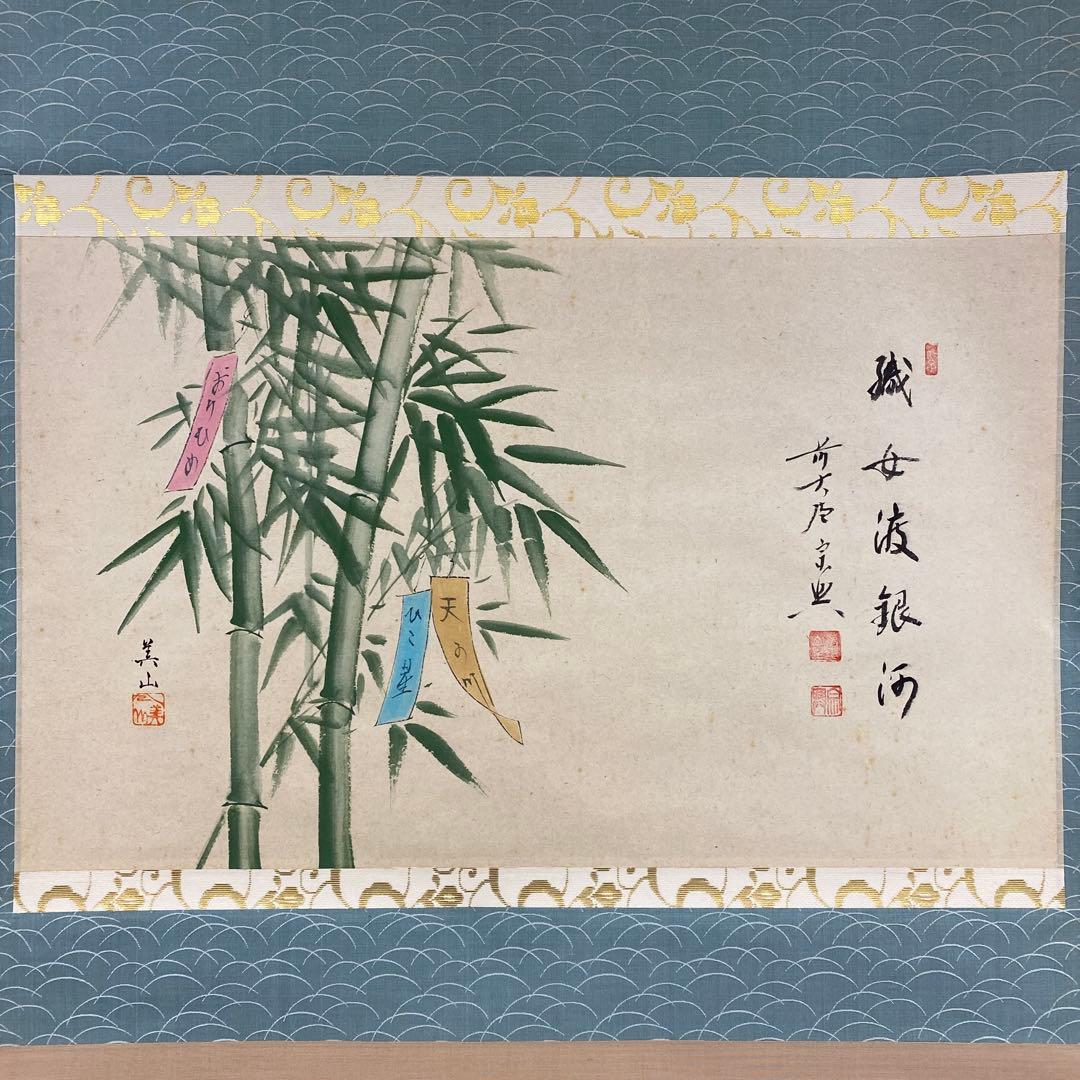 織女渡銀河
前大徳宗典
おりひめ
天の川
ひこ星
美山